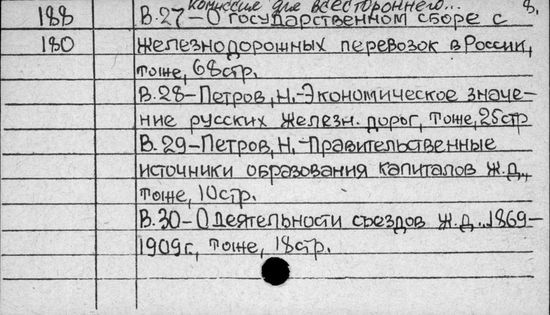 Комиссия для всестороннего... 8,
188 В.27-О государственном сборе с
180 железнодорожных перевозок в России,
тоже, 68стр.
В.28-Петров, Н.-Экономическое значе-
ние русских железн. дорог, тоже, 25стр
В.29-Петров, Н.-Правительственные
источники образования капиталов ж.д.,
тоже, 10стр.
В.30-О деятельности съездов ж.д. 1869-
1909г., тоже, 18стр.